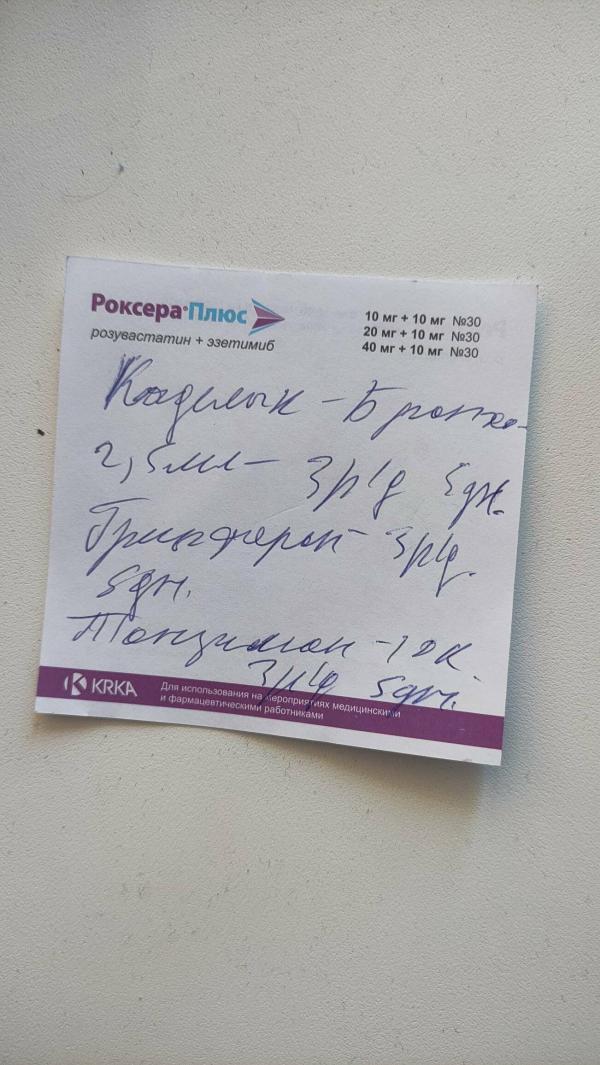 Роксера®Плюс
розувастатин + эзетимиб
10 мг + 10 мг №30
20 мг + 10 мг №30
40 мг + 10 мг №30
Каделык - Бронхо-
2,5мл - 3р/д 5дн.
Гриппферон 3р/д
5дн.
Тонзимон - 10к
3р/д 5дн.
KRKA
Для использования на мероприятиях медицинскими
и фармацевтическими работниками